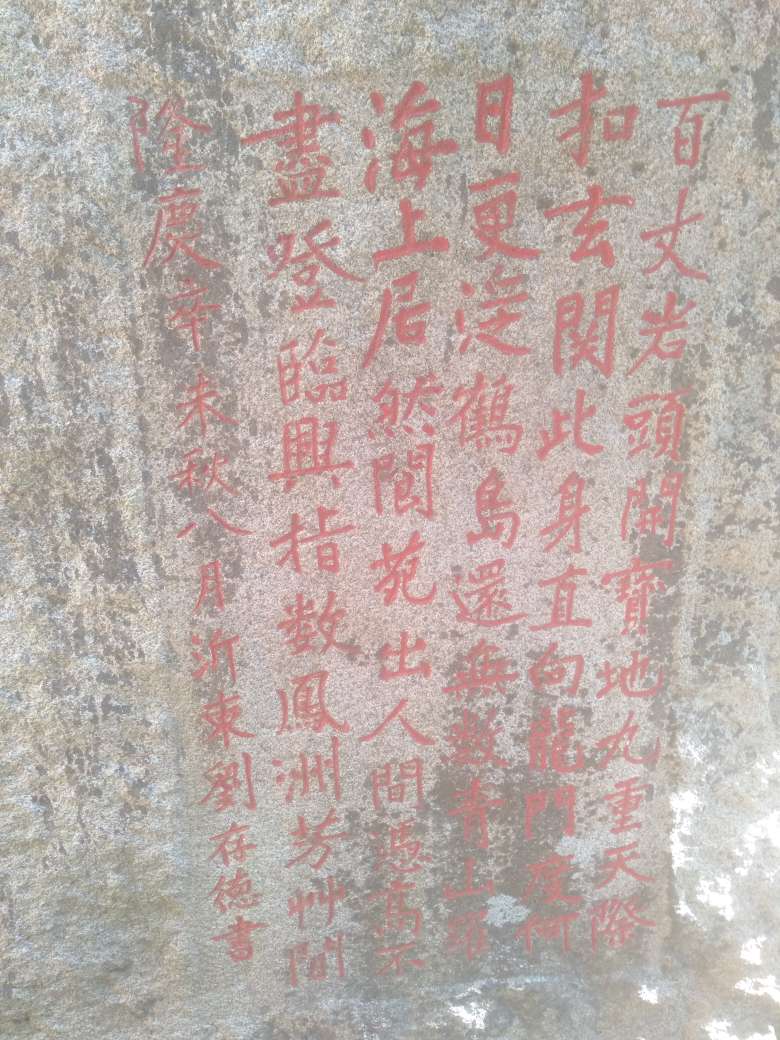 百丈岩頭開寶地九重天際
扣玄関此身直向龍門度何
日更從鶴島還無数青山羅
海上居然閬苑出人間憑高不
盡登臨興指数鳳洲芳艸間
隆慶辛未秋八月沂東劉存德書